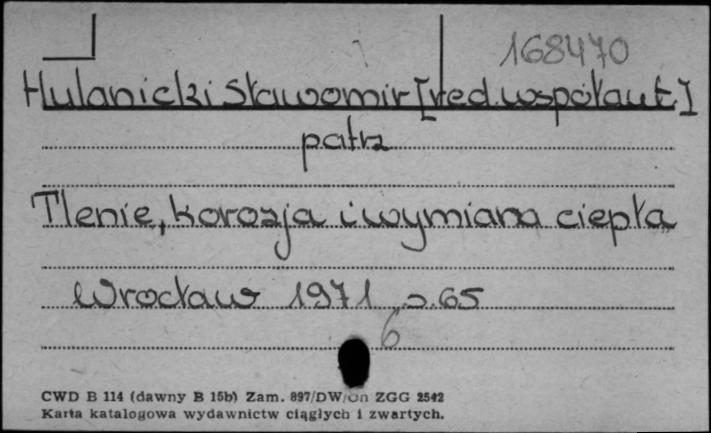 168470
Hulanicki Sławomir [red. współaut.]
patrz
Tlenie, korozja i wymiana ciepła
Wrocław 1971 s. 65
6
CWD B 114 (dawny B 15b) Zam. 897/DW/Gn ZGG 2542
Karta katalogowa wydawnictw ciągłych i zwartych.